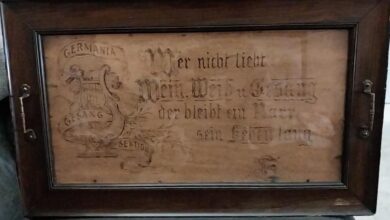 GERMANIA
GESANG
SEKTION
Wer nicht liebt
Wein, Weib u. Gesang
der bleibt ein Narr
sein Leben lang